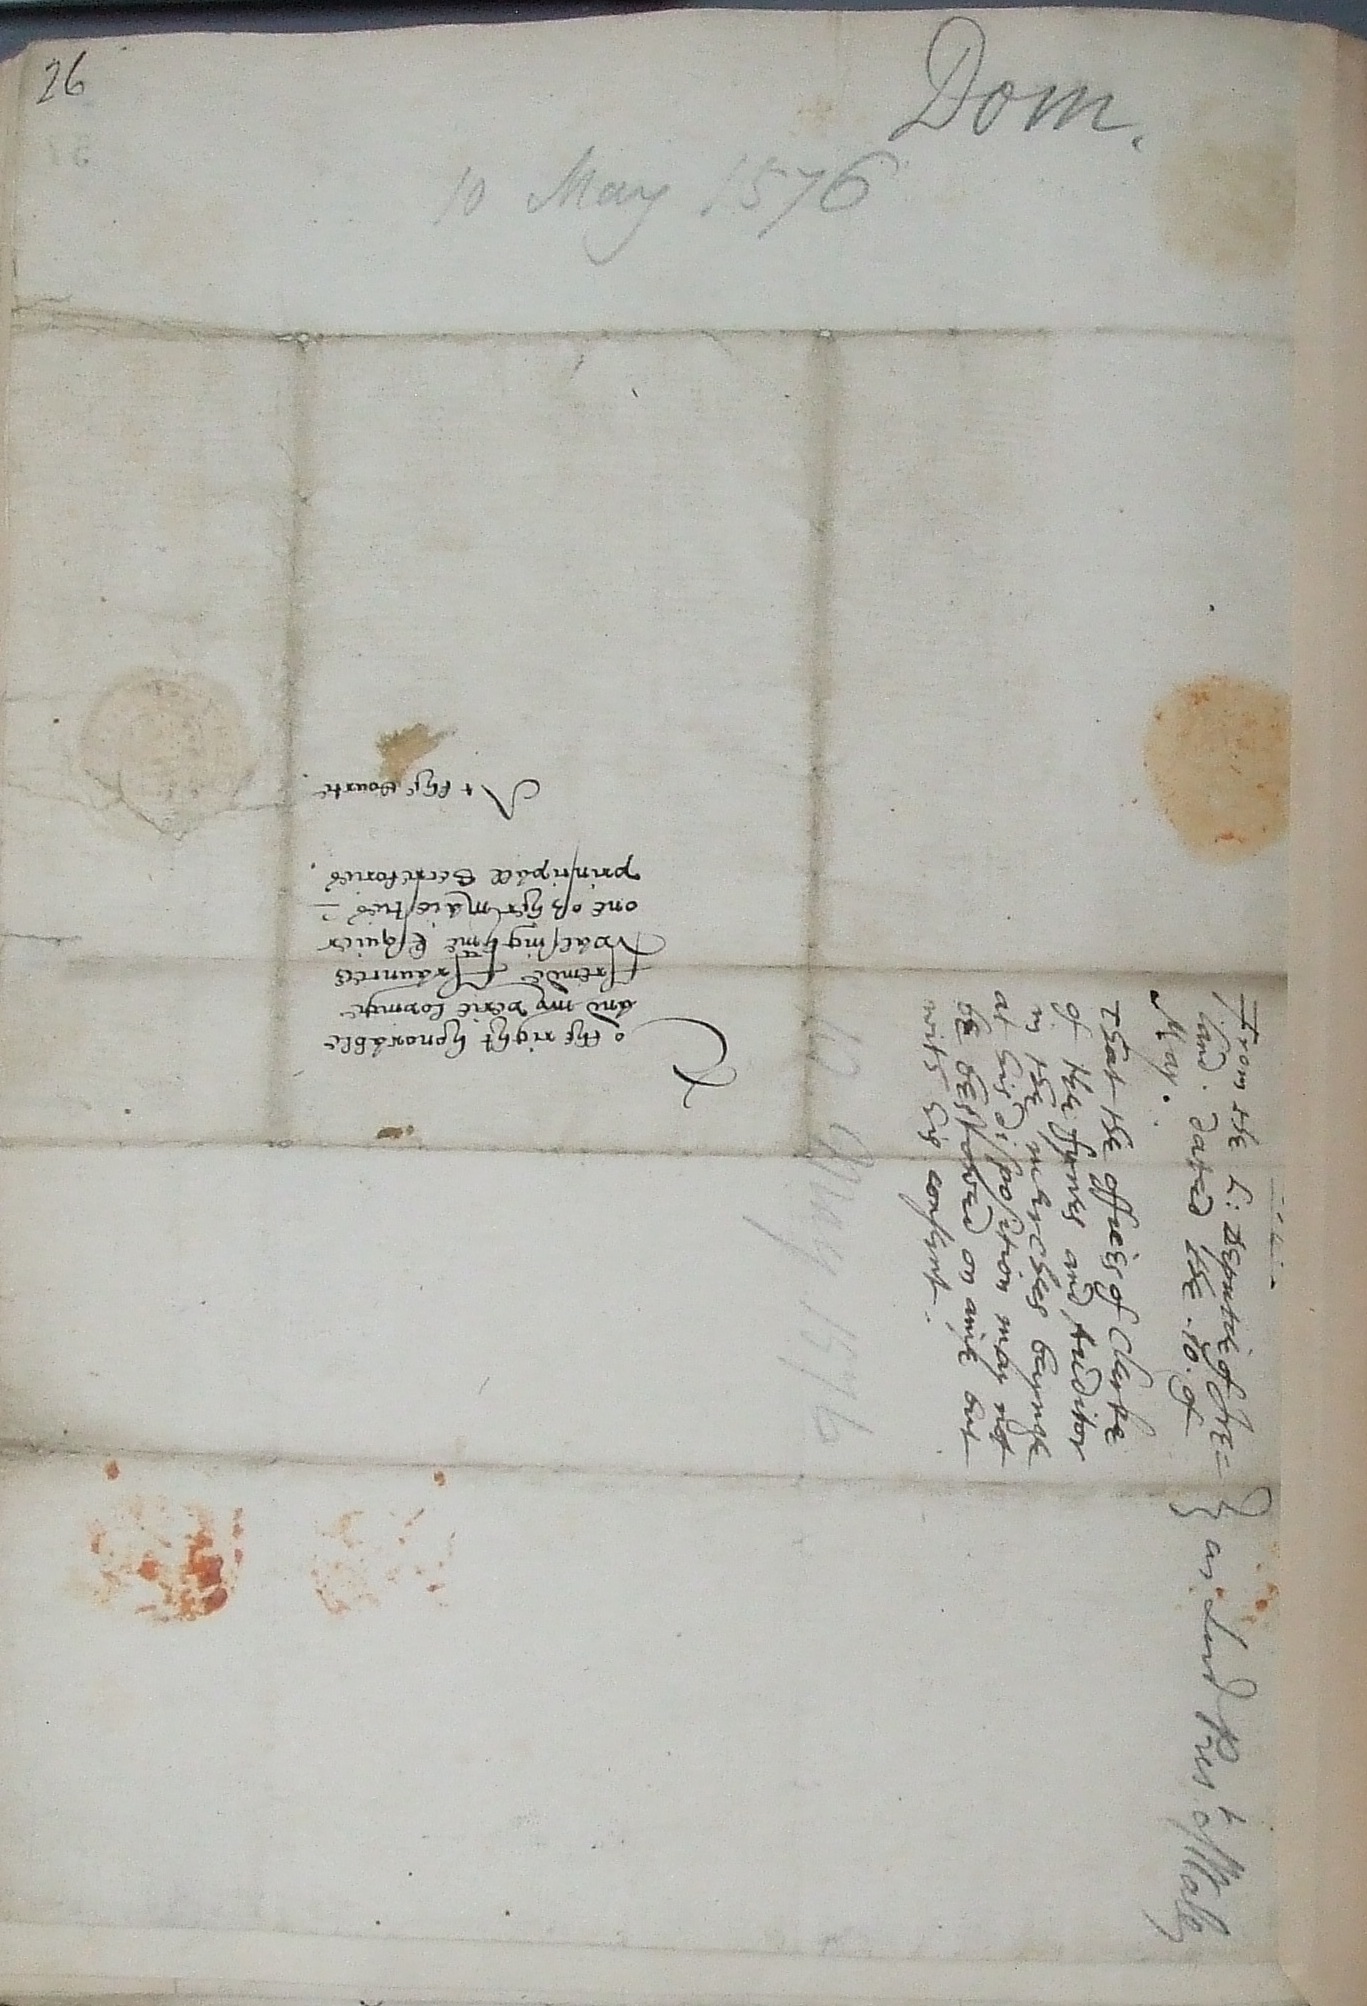 26
Dom.
10 May 1576
To the right honorable
and my verie lovinge
Frende Fraunces
Walsinghme Esquier
one of her maiesties
principall Secretories.
At the Courte.
10 May 1576
From the L: deputie of Ire=
land. dated the .10. of
May.
that the offices of Clerke
of the fynes and Auditor
in the marches beynge
at his disposition may not
be bestowed on anie but
with his consent.
as Lord Prest of Wales